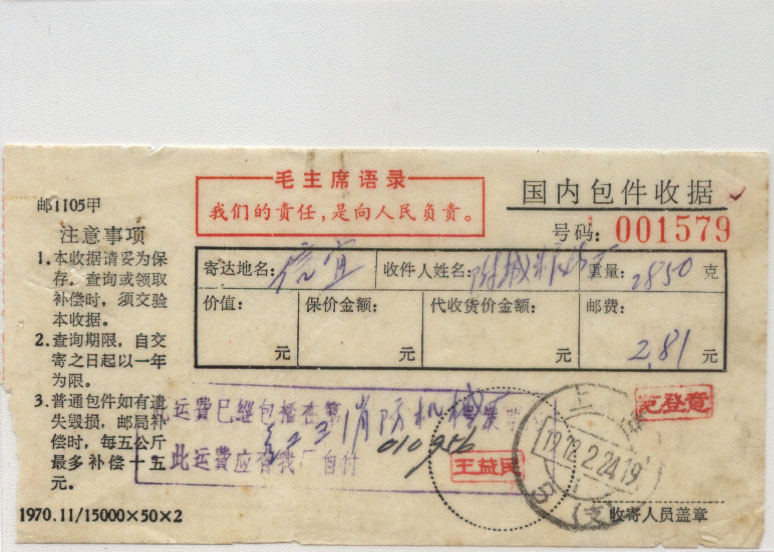 毛主席语录
我们的责任，是向人民负责。
国内包件收据
号码：001579
邮1105甲
注意事项
1.本收据请妥为保
存，查询或领取
补偿时，须交验
本收据。
2.查询期限，自交
寄之日起以一年
为限。
3.普通包件如有遗
失毁损，邮局补
偿时，每五公斤
最多补偿十五
元。
1970.11/15000×50×2
寄达地名：信宜 收件人姓名： 重量：2850 克
价值： 元
保价金额： 元
代收货价金额： 元
邮费： 2.81 元
运费已经包括在第
消防机械厂发票
此运费应否我厂自付
010956
王益民
范登意
上海
19 72.2.24.19
(支)
收寄人员盖章